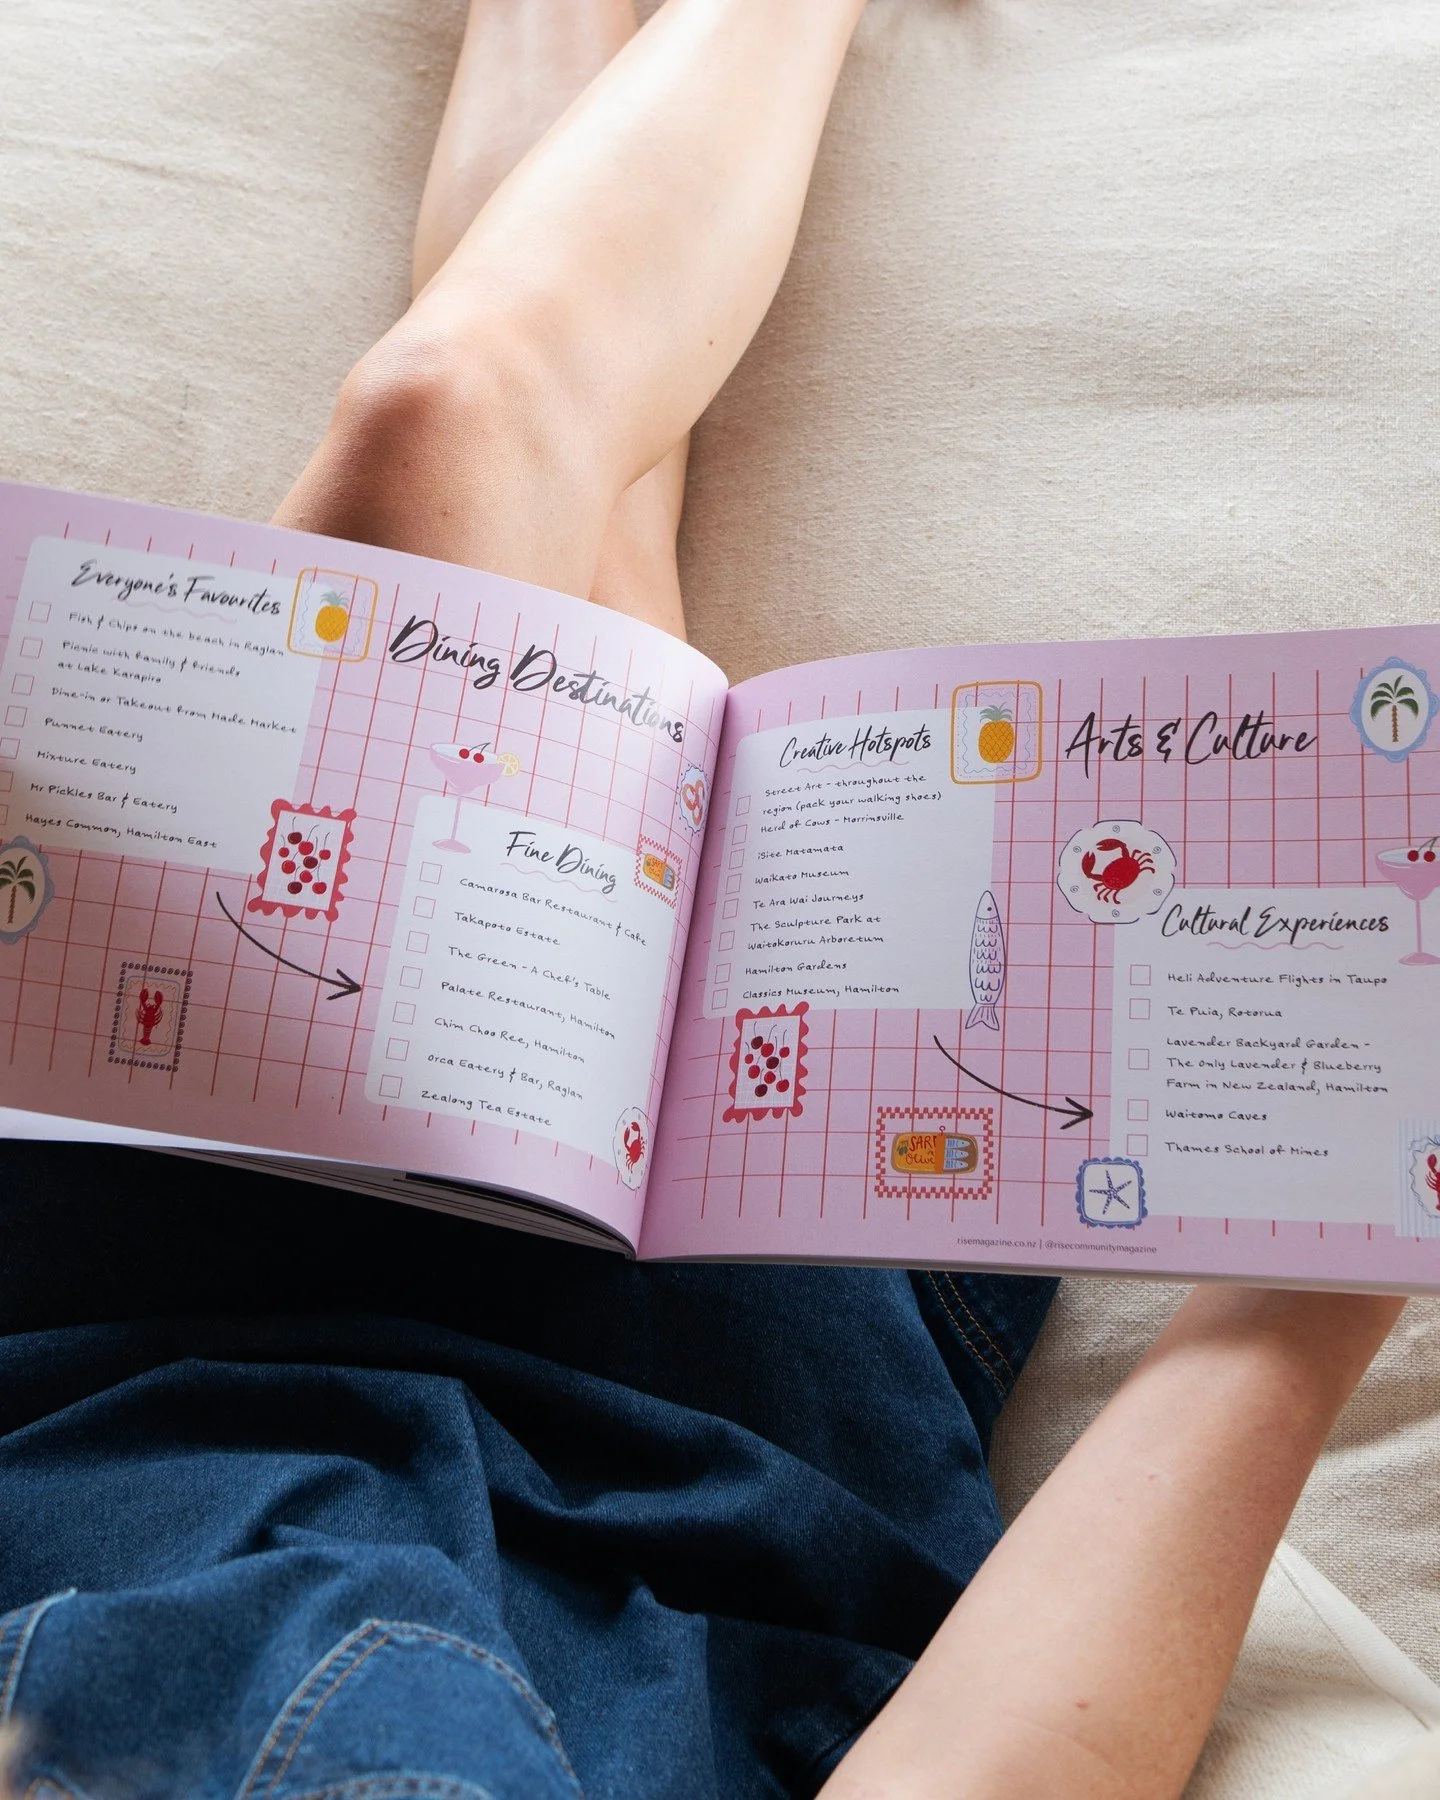 Everyone's Favourites
Fish & Chips on the beach in Raglan
Picnic with family & friends
at Lake Karapiro
Dine-in or Takeout from Made Market
Punnet Eatery
Mixture Eatery
Mr Pickles Bar & Eatery
Hayes Common, Hamilton East
Dining Destinations
Fine Dining
Camarosa Bar Restaurant & Cafe
Takapoto Estate
The Green - A Chef's Table
Palate Restaurant, Hamilton
Chim Choo Ree, Hamilton
Orca Eatery & Bar, Raglan
Zealong Tea Estate
Creative Hotspots
Street Art - throughout the
region (pack your walking shoes)
Herd of Cows - Morrinsville
iSite Matamata
Waikato Museum
Te Ara Wai Journeys
The Sculpture Park at
Waitakaruru Arboretum
Hamilton Gardens
Classics Museum, Hamilton
Arts & Culture
Cultural Experiences
Heli Adventure Flights in Taupo
Te Puia, Rotorua
Lavender Backyard Garden -
The Only Lavender & Blueberry
Farm in New Zealand, Hamilton
Waitomo Caves
Thames School of Mines
risemagazine.co.nz | @risecommunitymagazine